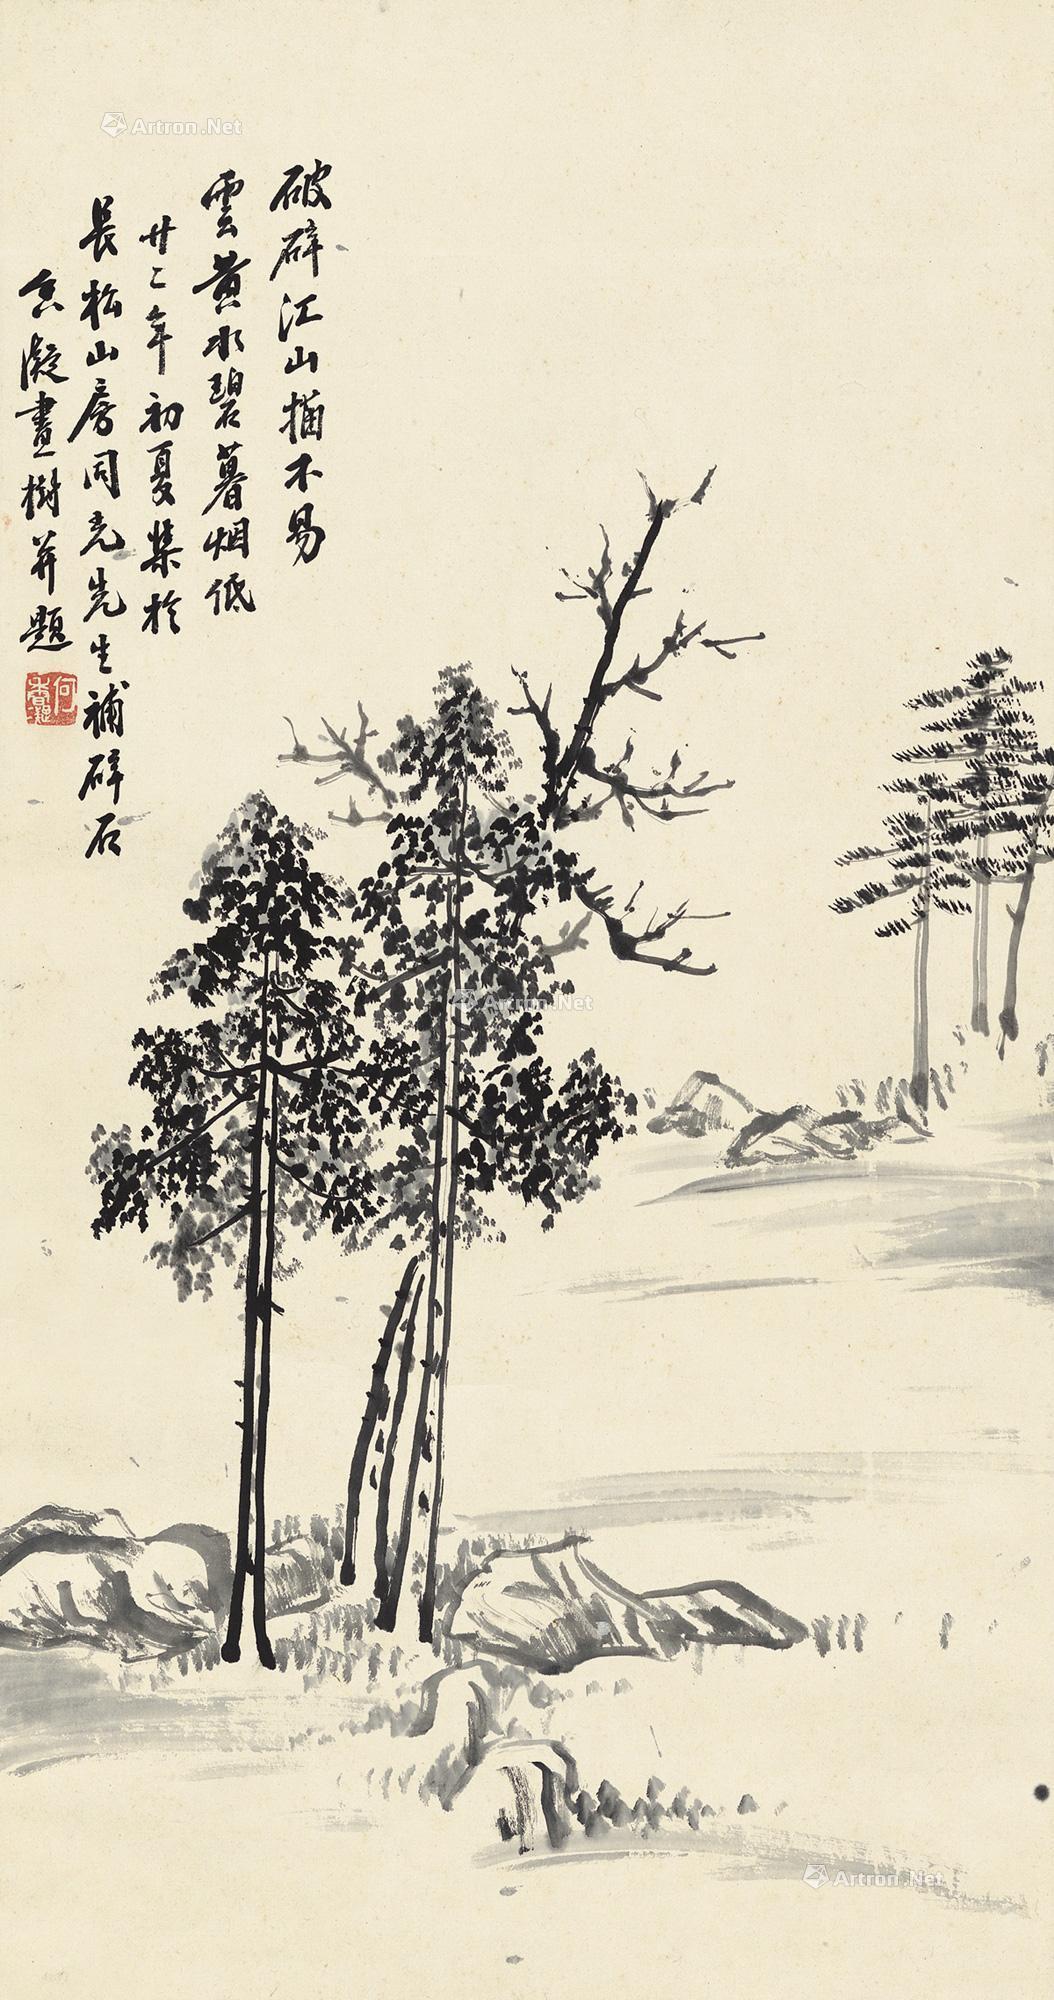 破碎江山描不易
雲黃水碧暮烟低
廿二年初夏集於
長松山房同堯先生補碎石
香凝畫樹并題
何香凝
Artron.Net
Artron.Net
Artron.Net